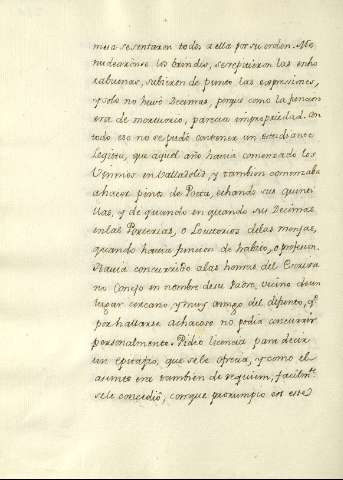 mesa se sentaron todos a ella por su orden. Me
nudearónse los brindis, se repitieron las enho
rabuenas, subieron de punto las expresiones,
y solo no huvo Decimas, porqe como la funcion
era de mortuorio, parecia impropiedad. Con
todo eso no se pudo contener un estudiante
Legista, que aquel año havia comenzado los
Vinnios en Valladolid, y tambien comenzaba
a hacer pinos de Poeta, echando sus quinti
llas, y de quando en quando sus Decimas
en las Porterias, o Locutorios de las monjas,
quando havia funcion de habito, o profesion.
Havia concurrido a las honras del Escriva
no Conejo en nombre de su Padre, vecino de un
lugar cercano, y muy amigo del difunto, qe
por hallarse achacoso no podia concurrir
personalmente. Pidió licencia para decir
un epitafio, que se le ofrecia, y como el
asunto era tambien de requiem, facilmte
se le concedió, con que prorumpio en este